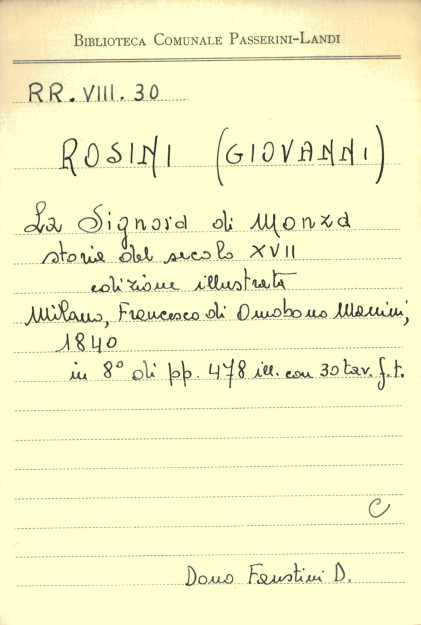 BIBLIOTECA COMUNALE PASSERINI-LANDI
RR. VIII. 30
ROSINI (GIOVANNI)
La Signora di Monza
storia del secolo XVII
edizione illustrata
Milano, Francesco di Omobono Manini,
1840
in 8° di pp. 478 ill. con 30 tav. f.t.
C
Dono Faustini D.